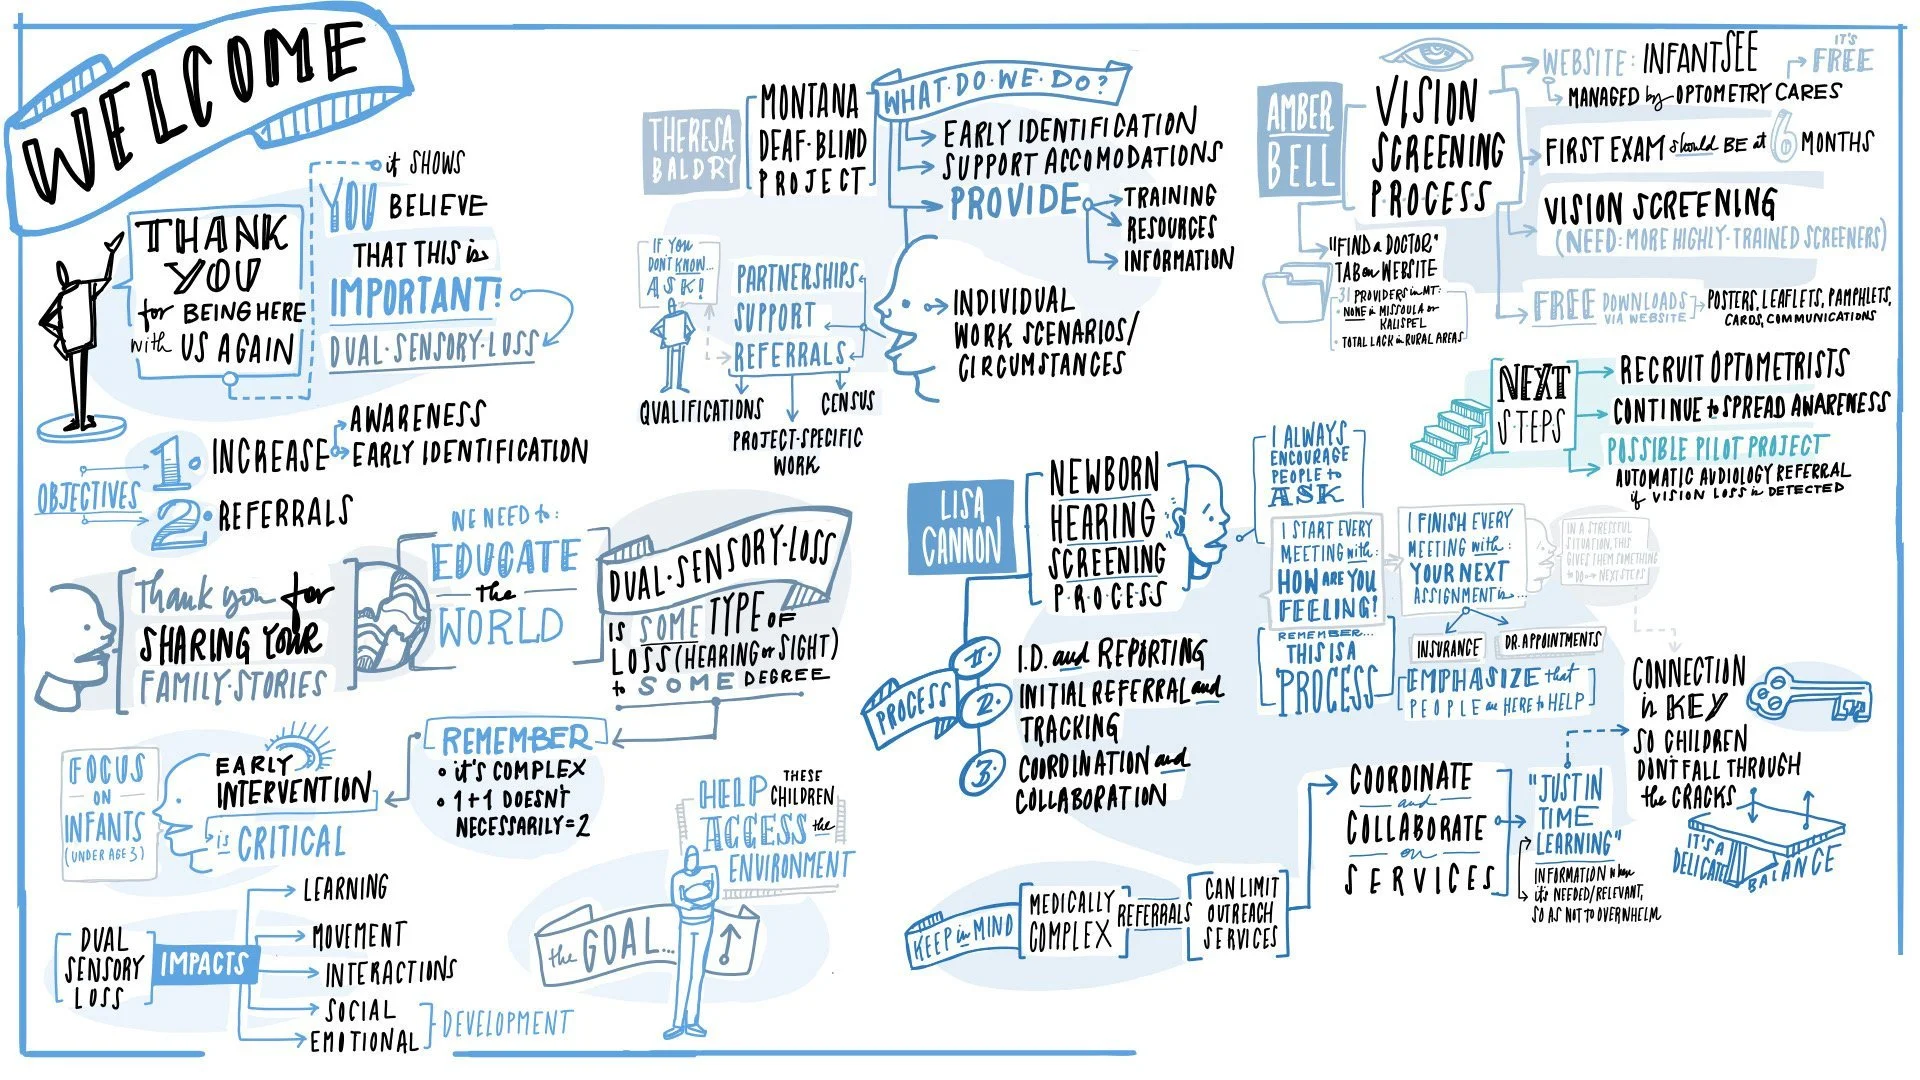 WELCOME
THANK
YOU
for BEING HERE
with US AGAIN
it SHOWS
YOU BELIEVE
THAT THIS is
IMPORTANT!
DUAL·SENSORY·LOSS
OBJECTIVES
1. INCREASE
AWARENESS
EARLY IDENTIFICATION
2. REFERRALS
Thank you for
SHARING YOUR
FAMILY·STORIES
WE NEED to:
EDUCATE
the
WORLD
DUAL·SENSORY·LOSS
IS SOME TYPE OF
LOSS (HEARING or SIGHT)
to SOME DEGREE
REMEMBER
• it's COMPLEX
• 1+1 DOESN'T
NECESSARILY=2
EARLY
INTERVENTION
is CRITICAL
FOCUS
ON
INFANTS
(UNDER AGE 3)
DUAL
SENSORY
LOSS
IMPACTS
LEARNING
MOVEMENT
INTERACTIONS
SOCIAL
EMOTIONAL
DEVELOPMENT
the GOAL...
HELP THESE
CHILDREN
ACCESS the
ENVIRONMENT
THERESA
BALDRY
MONTANA
DEAF-BLIND
PROJECT
WHAT·DO·WE·DO?
EARLY IDENTIFICATION
SUPPORT ACCOMODATIONS
PROVIDE
TRAINING
RESOURCES
INFORMATION
INDIVIDUAL
WORK SCENARIOS/
CIRCUMSTANCES
PARTNERSHIPS
SUPPORT
REFERRALS
IF YOU
DON'T KNOW...
ASK!
QUALIFICATIONS
PROJECT-SPECIFIC
WORK
CENSUS
AMBER
BELL
VISION
SCREENING
PROCESS
WEBSITE: INFANTSEE
IT'S
FREE
MANAGED by OPTOMETRY CARES
FIRST EXAM should BE at 6 MONTHS
VISION SCREENING
(NEED: MORE HIGHLY-TRAINED SCREENERS)
FREE DOWNLOADS
VIA WEBSITE
POSTERS, LEAFLETS, PAMPHLETS,
CARDS, COMMUNICATIONS
"FIND a DOCTOR"
TAB on WEBSITE
31 PROVIDERS in MT:
• NONE in MISSOULA or
KALISPEL
• TOTAL LACK in RURAL AREAS
NEXT
STEPS
RECRUIT OPTOMETRISTS
CONTINUE to SPREAD AWARENESS
POSSIBLE PILOT PROJECT
AUTOMATIC AUDIOLOGY REFERRAL
if VISION LOSS is DETECTED
LISA
CANNON
NEWBORN
HEARING
SCREENING
PROCESS
I ALWAYS
ENCOURAGE
PEOPLE to
ASK
I START EVERY
MEETING with:
HOW ARE YOU
FEELING!
I FINISH EVERY
MEETING with:
YOUR NEXT
ASSIGNMENT is...
IN A STRESSFUL
SITUATION, THIS
GIVES THEM SOMETHING
to DO → NEXT STEPS
INSURANCE
DR. APPOINTMENTS
REMEMBER...
THIS IS A
PROCESS
EMPHASIZE that
PEOPLE are HERE to HELP
PROCESS
1. I.D. and REPORTING
2. INITIAL REFERRAL and
TRACKING
3. COORDINATION and
COLLABORATION
KEEP in MIND
MEDICALLY
COMPLEX
REFERRALS
CAN LIMIT
OUTREACH
SERVICES
COORDINATE
and
COLLABORATE
on
SERVICES
"JUST IN
TIME
LEARNING"
INFORMATION when
it's NEEDED/RELEVANT,
SO AS NOT to OVERWHELM
CONNECTION
is KEY
SO CHILDREN
DON'T FALL THROUGH
the CRACKS
IT'S A
DELICATE
BALANCE